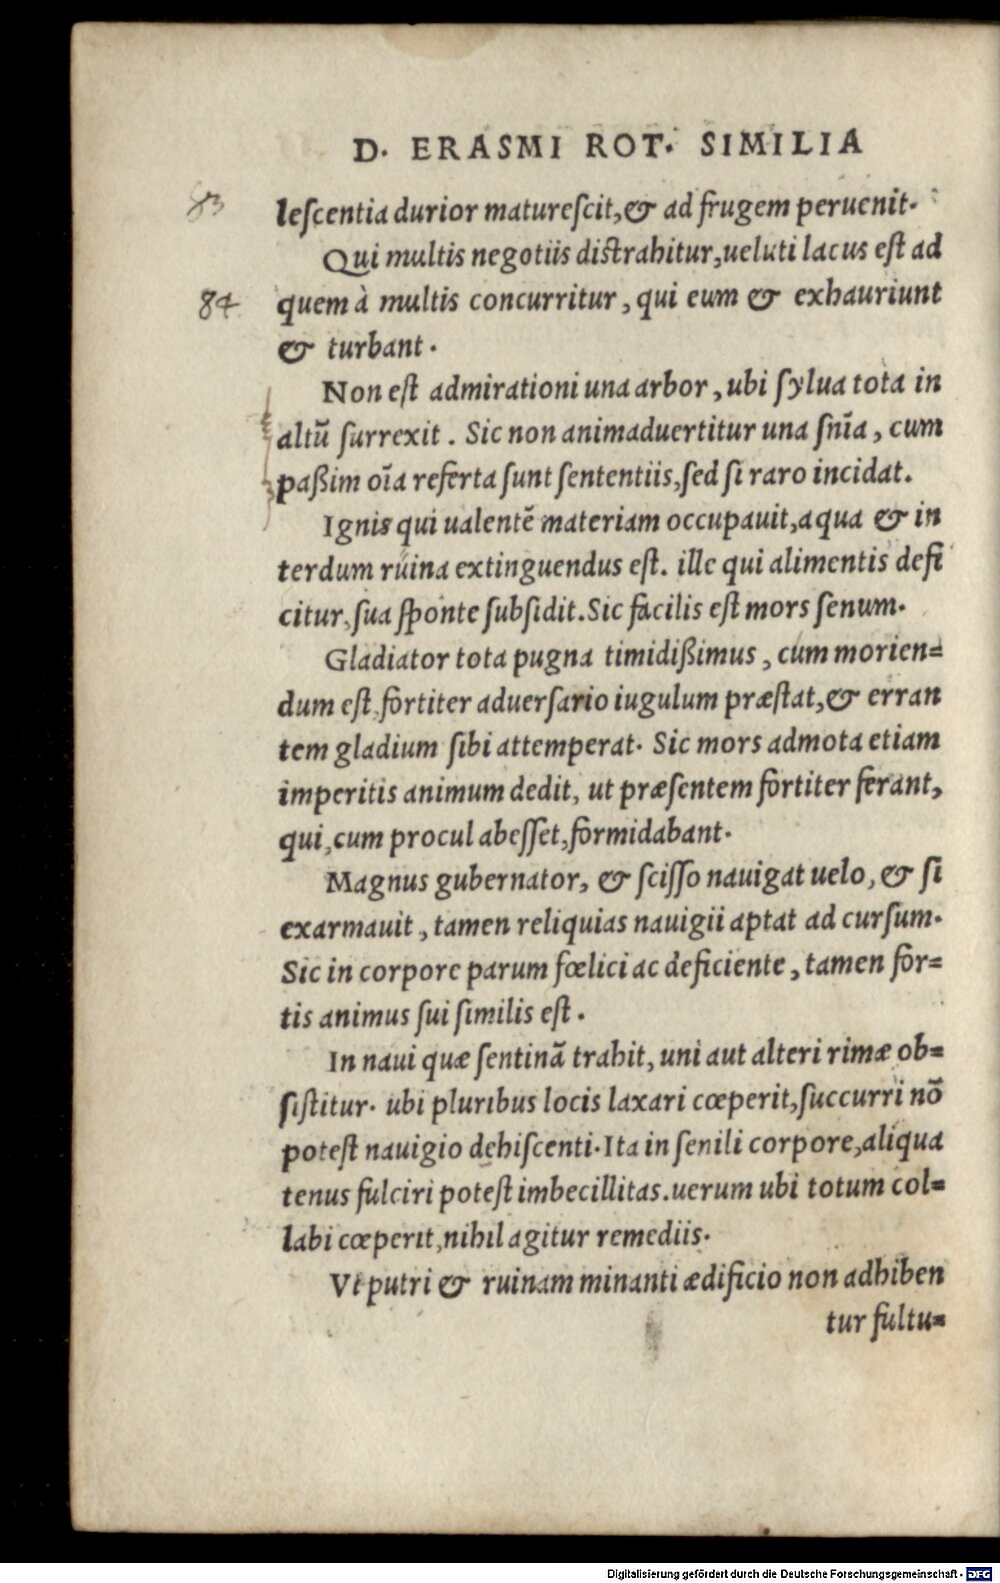 D. ERASMI ROT. SIMILIA
83
leſcentia durior matureſcit,& ad frugem peruenit.
Qui multis negotiis diſtrahitur,ueluti lacus eſt ad
84
quem à multis concurritur, qui eum & exhauriunt
& turbant.
Non eſt admirationi una arbor, ubi ſylua tota in
altū ſurrexit. Sic non animaduertitur una ſnīa, cum
paßim oīa referta ſunt ſententiis,ſed ſi raro incidat.
Ignis qui ualentē materiam occupauit,aqua & in
terdum ruina extinguendus eſt. ille qui alimentis defi
citur,ſua ſponte ſubſidit.Sic facilis eſt mors ſenum.
Gladiator tota pugna timidißimus, cum morien=
dum eſt,fortiter aduerſario iugulum præſtat,& erran
tem gladium ſibi attemperat. Sic mors admota etiam
imperitis animum dedit, ut præſentem fortiter ferant,
qui,cum procul abeſſet,formidabant.
Magnus gubernator, & ſciſſo nauigat uelo, & ſi
exarmauit, tamen reliquias nauigii aptat ad curſum.
Sic in corpore parum fœlici ac deficiente, tamen for=
tis animus ſui ſimilis eſt.
In naui quæ ſentinā trahit, uni aut alteri rimæ ob=
ſiſtitur. ubi pluribus locis laxari cœperit,ſuccurri nō
poteſt nauigio dehiſcenti.Ita in ſenili corpore,aliqua
tenus fulciri poteſt imbecillitas.uerum ubi totum col=
labi cœperit,nihil agitur remediis.
Vt putri & ruinam minanti ædificio non adhiben
tur fultu=
Digitalisierung gefördert durch die Deutsche Forschungsgemeinschaft - DFG